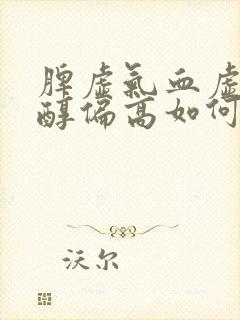 脾虚氣血虚
醇偏高如何
沃尔